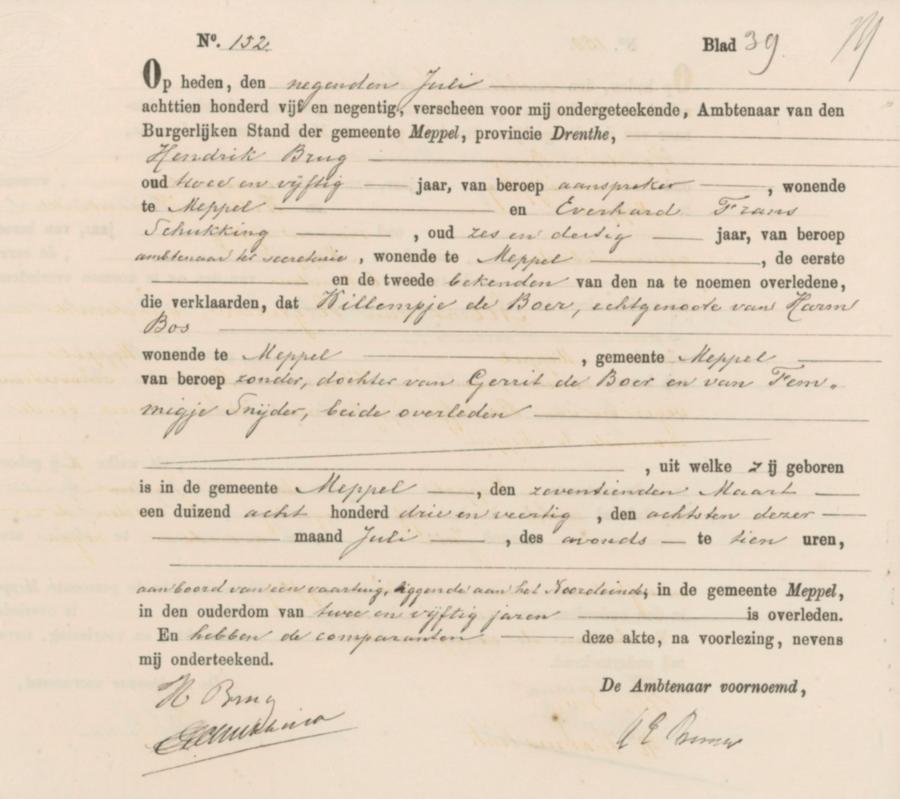 No. 152. Blad 39.
Op heden, den negenden Juli
achttien honderd vijf en negentig, verscheen voor mij ondergeteekende, Ambtenaar van den
Burgerlijken Stand der gemeente Meppel, provincie Drenthe,
Hendrik Brug
oud twee en vijftig jaar, van beroep aanspreker, wonende
te Meppel en Everhard Frans
Schukking, oud zes en dertig jaar, van beroep
ambtenaar ter secretarie, wonende te Meppel, de eerste
en de tweede bekenden van den na te noemen overledene,
die verklaarden, dat Willempje de Boer, echtgenoote van Harm
Bos
wonende te Meppel, gemeente Meppel
van beroep zonder, dochter van Gerrit de Boer en van Fem-
migje Snijder, beide overleden
, uit welke zij geboren
is in de gemeente Meppel, den zeventienden Maart
een duizend acht honderd drie en veertig, den achtsten dezer
maand Juli, des avonds te tien uren,
aan boord van een vaartuig, liggende aan het Noordeinde, in de gemeente Meppel,
in den ouderdom van twee en vijftig jaren is overleden.
En hebben de comparanten deze akte, na voorlezing, nevens
mij onderteekend.
De Ambtenaar voornoemd,
H Brug